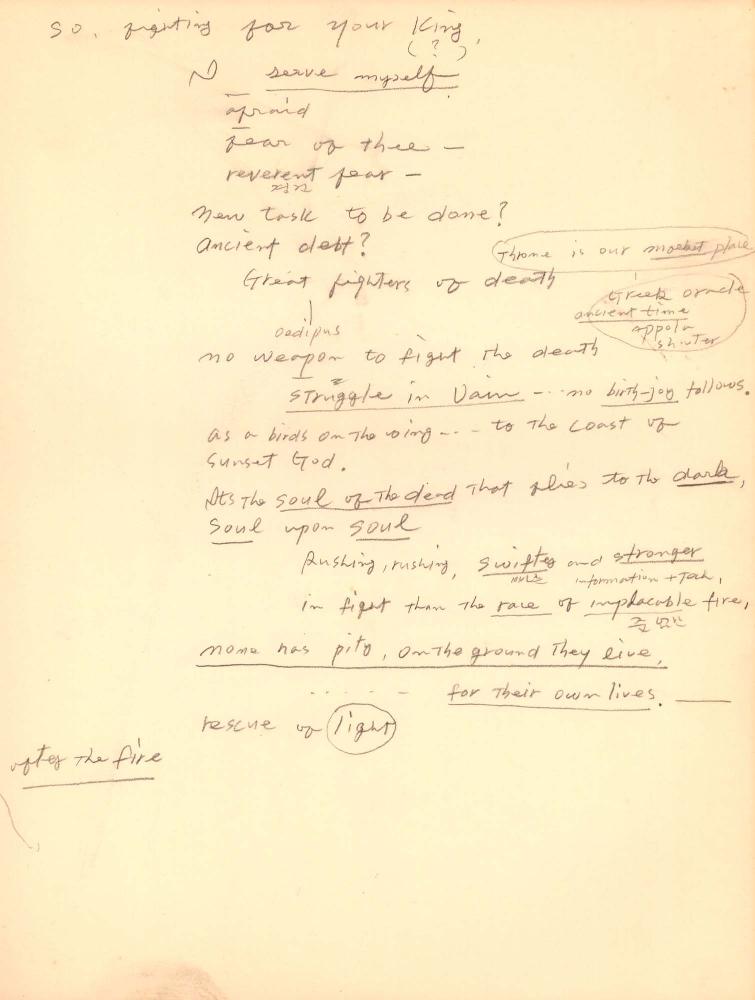 so, fighting for your King,
( ? )
serve myself
afraid
fear of thee —
reverent fear —
new task to be done?
ancient debt?
Throne is our market place
Great fighters of death
Greek oracle
ancient time
appolo
shuter
oedipus
no weapon to fight the death
struggle in Vain --- no birth-joy follows.
as a birds on the wing --- to the coast of
Sunset God.
Its the soul of the dead that flies to the dark,
soul upon soul
Rushing, rushing, swifter and stronger
information + Tech,
in fight than the race of implacable fire,
none has pity, on the ground they live,
..... - for their own lives. —
rescue of light
after the fire